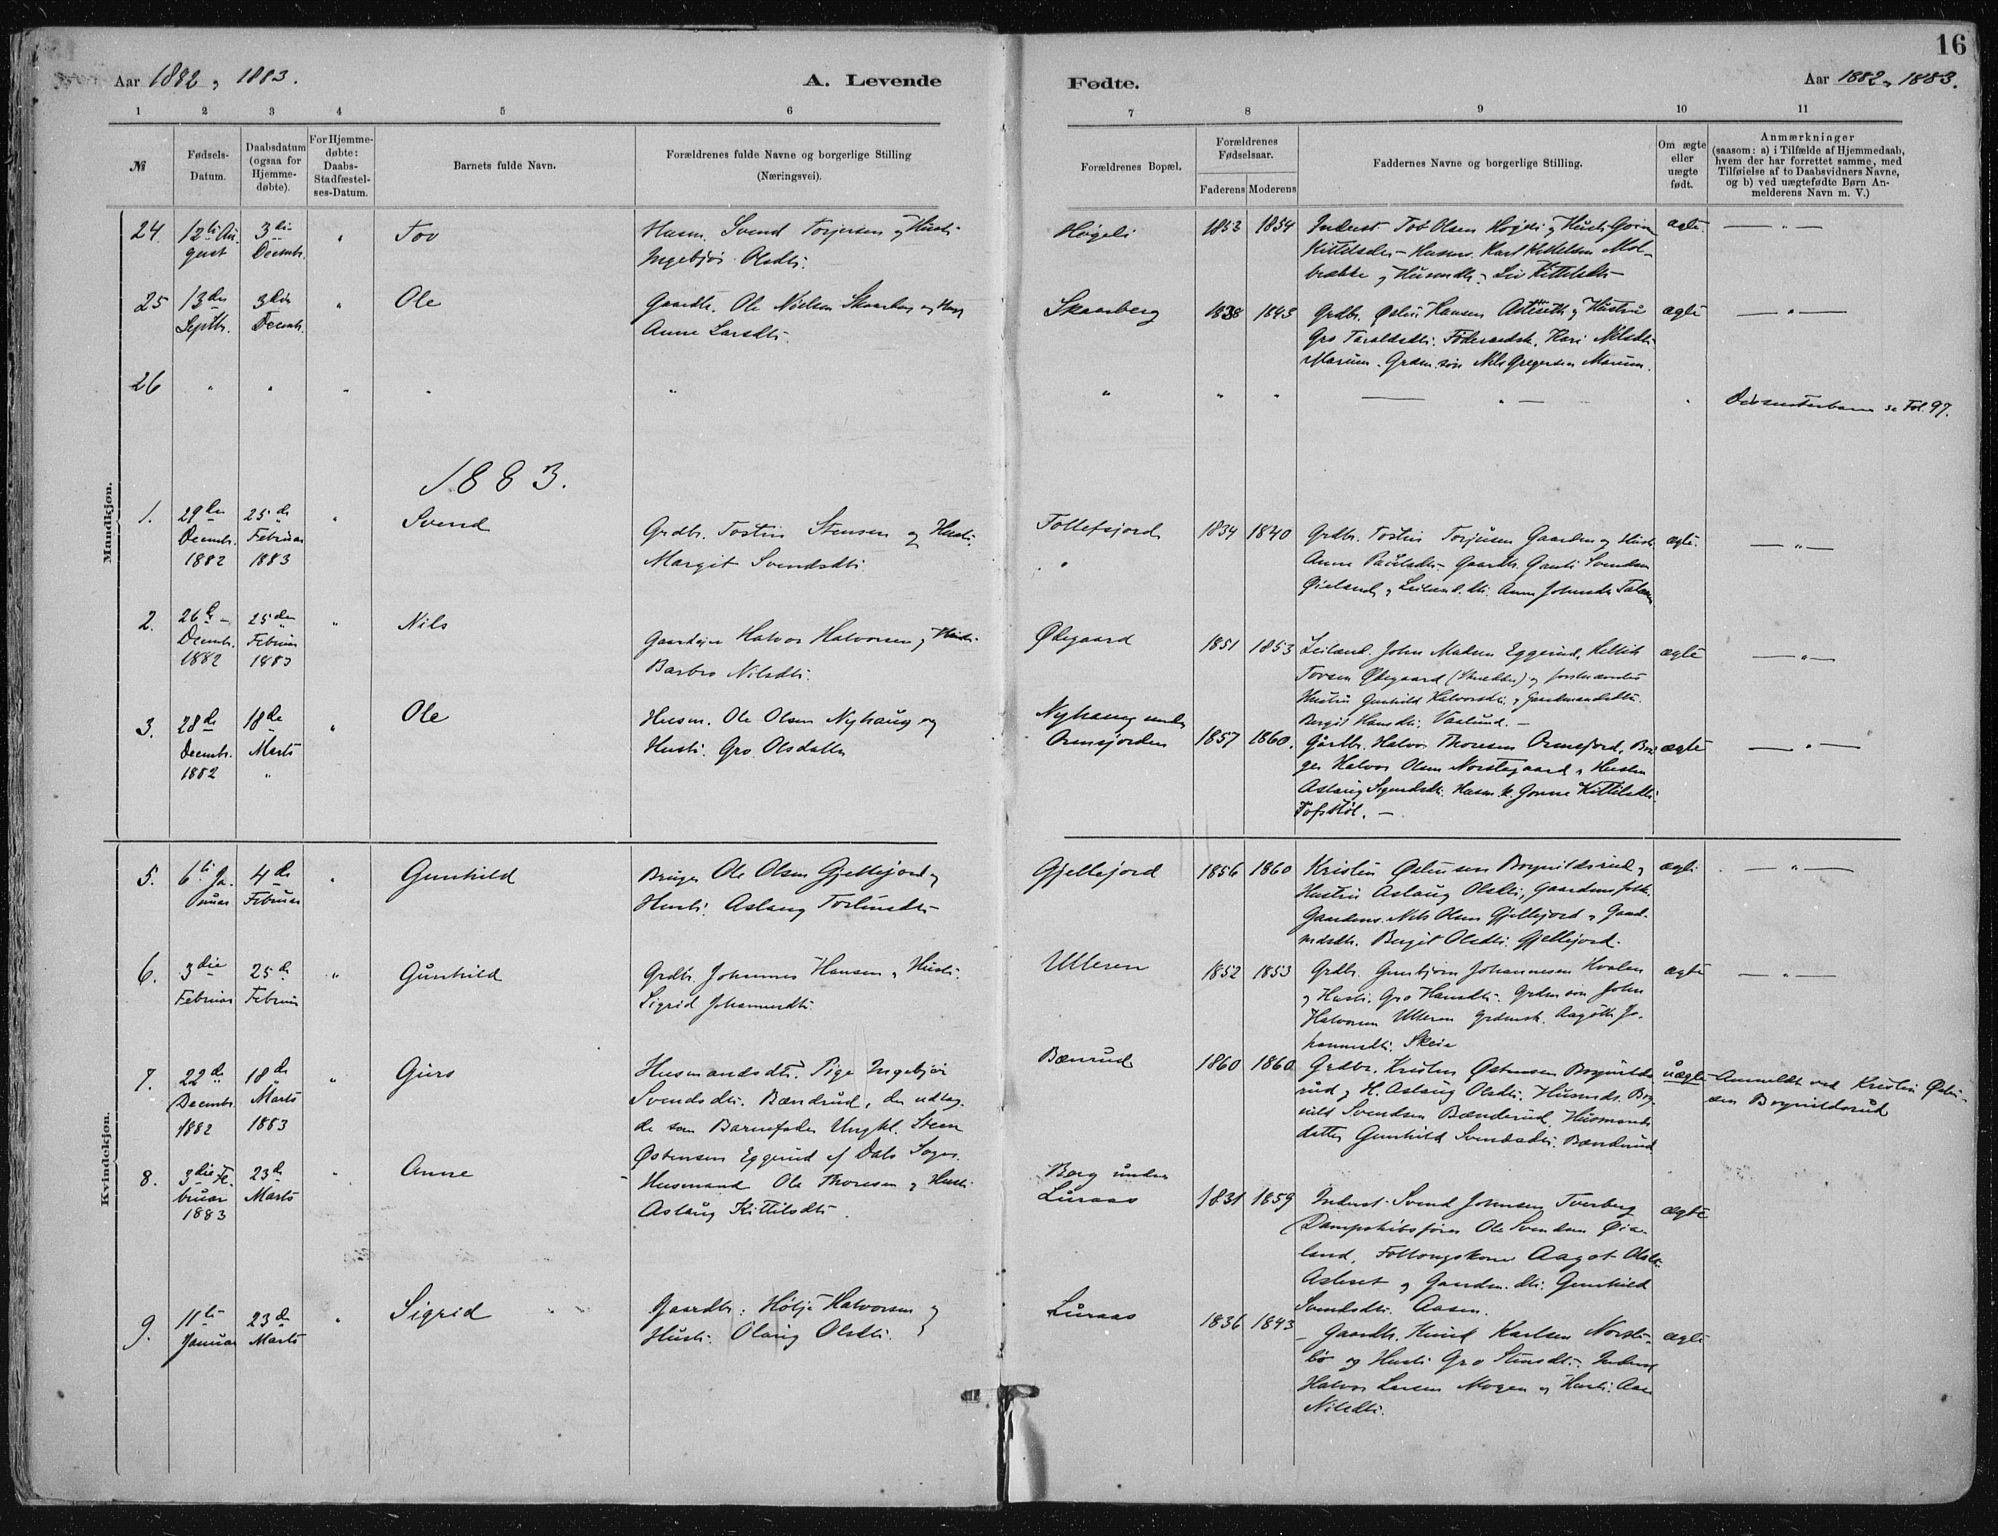 16
Aar 1882 og 1883.
A. Levende
Fødte.
Aar 1882 og 1883.
1 2 3 4 5 6
7 8 9 10 11
№
Fødsels-
Datum.
Daabsdatum
(ogsaa for
Hjemme-
døbte).
For Hjemme-
døbte:
Daabs-
Stadfæstel-
ses-Datum.
Barnets fulde Navn.
Forældrenes fulde Navne og borgerlige Stilling
(Næringsvei).
Forældrenes Bopæl.
Forældrenes
Fødselsaar.
Faderens Moderens
Faddernes Navne og borgerlige Stilling.
Om ægte
eller
uægte
født.
Anmærkninger
(saasom: a) i Tilfælde af Hjemmedaab,
hvem der har forrettet samme, med
Tilføielse af to Daabsvidners Navne,
og b) ved uægtefødte Børn An-
melderens Navn m. V.)
Mandkjøn.
24. 12te Au-
gust
3die
Decembr.
Tov
Husm. Svend Torjersen og Hustr.
Ingebjør Olsdtr.
Høgeli
1853 1854
Inderst Tov Olsen Høgeli og Hustr.
Kittilsdtr. - Husm. Karl Kittilsen
ægte
25 13de
Septbr.
3die
Decembr.
Ole
Gaardbr. Ole Nielsen Skaarberg og
Anne Larsdtr.
Skaarberg
1838 1843
Grdbr. Østen Hansen og Hustru
Gro Taraldsdtr. Føderaadsk. Kari Nilsdtr.
Marum. Grdm. søn Nils Gregersen Marum.
ægte
26
Dissenterbarn se Fol. 97.
1883.
1. 29de
Decembr.
1882
25de
Februar
1883
Svend
Grdbr. Tostin Stensen og Hustr.
Margit Svendsdtr.
Follefsjord
1834 1840
Grdbr. Tostin Torjusen Gaarden og Hustr.
Anne Paulsdtr. Gaardbr. Svendsen
ægte.
2. 26de
Decembr.
1882
25de
Februar
1883
Nils
Gaardeier Halvor Halvorsen og Hustr.
Barbro Nilsdtr.
Ødegaard
1851 1853
Leilænd. John Madsen Eggerud, Kittil
Torsen Ødegaard (Skrædder) og førstnævntes
Hustru Gunhild Halvorsdtr. og Gaardmandsdtr.
Bergit Hansdtr. Vaalund. -
ægte
3. 28de
Decembr.
1882
18de
Marts
Ole
Husm. Ole Olsen Nyhaug og
Hustr. Gro Olsdatter
Nyhaug under
Ormsjorden
1857 1860.
Gårdbr. Halvor Thoresen Ormsjord, Bru-
ger Halvor Olsen Norstegaard og Hustru
Aslaug Husm. k. Kittilsdtr.
ægte
Kvindekjøn.
5. 6te Ja-
nuar
4de
Februar
Gunhild
Bruger Ole Olsen Gjellejord og
Hustr. Aslaug Tostensdtr.
Gjellejord
1856 1860
Kristen Østensen Bognildsrud og
Hustru Aslaug Olsdtr., Gaardmsfolk.
Gaardms. Nils Olsen Gjellejord og Gaard-
mdsdtr. Bergit Olsdtr. Gjellejord.
ægte
6. 3die
Februar
25de
Februar
Gunhild
Grdbr. Johannes Hansen og Hustr.
Sigrid Johannesdtr.
Ulleren
1852 1853
Grdbr. Gunbjørn Johannesen Hvalen
og Hustr. Gro Hansdtr. Grdm søn John
Halvorsen Ulleren Grdmsk. Aagoth Jo-
hannesdtr. Skeie
ægte
7. 22de
Decembr.
1882
18de
Marts
1883
Guro
Husmandsdtr. Pige Ingebjør
Svendsdtr. Bænrud, der udlag-
de som Barnefader Ungkl. Steen
Østensen Eggerud af Dals Sogn.
Bænrud
1860 1860
Grdbr. Kristen Østensen Bognilds-
rud og H. Aslaug Olsdtr. Husmds. Bog-
nild Svendsen Bænderud, Husmands-
datter Gunhild Svendsdtr. Bænderud
uægte
Anmeldt ved Kristen Østen-
sen Bognildsrud
8. 3die Fe-
bruar
1883
23de
Marts
Anne
Husmand Ole Thoresen og Hustr.
Aslaug Kittilsdtr.
Borg under
Luraas
1831 1859
Inderst Svend Johnsen Tverberg
Dampskibsfører Ole Svendsen Øia-
land, Aagot Olsdtr.
og Gaardm. dtr. Gunhild
Svendsdtr. Aasen.
ægte
9. 11te
Januar
23de
Marts
Sigrid
Gaardbr. Høljе Halvorsen og
Hustr. Olaug Olsdtr.
Luraas
1836 1843
Gaardbr. Knud Karlsen Norste-
bø og Hustr. Gro Stensdtr. Inderst
Halvor Larsen Mogen og Hustr. Aase
Nilsdtr.
ægte